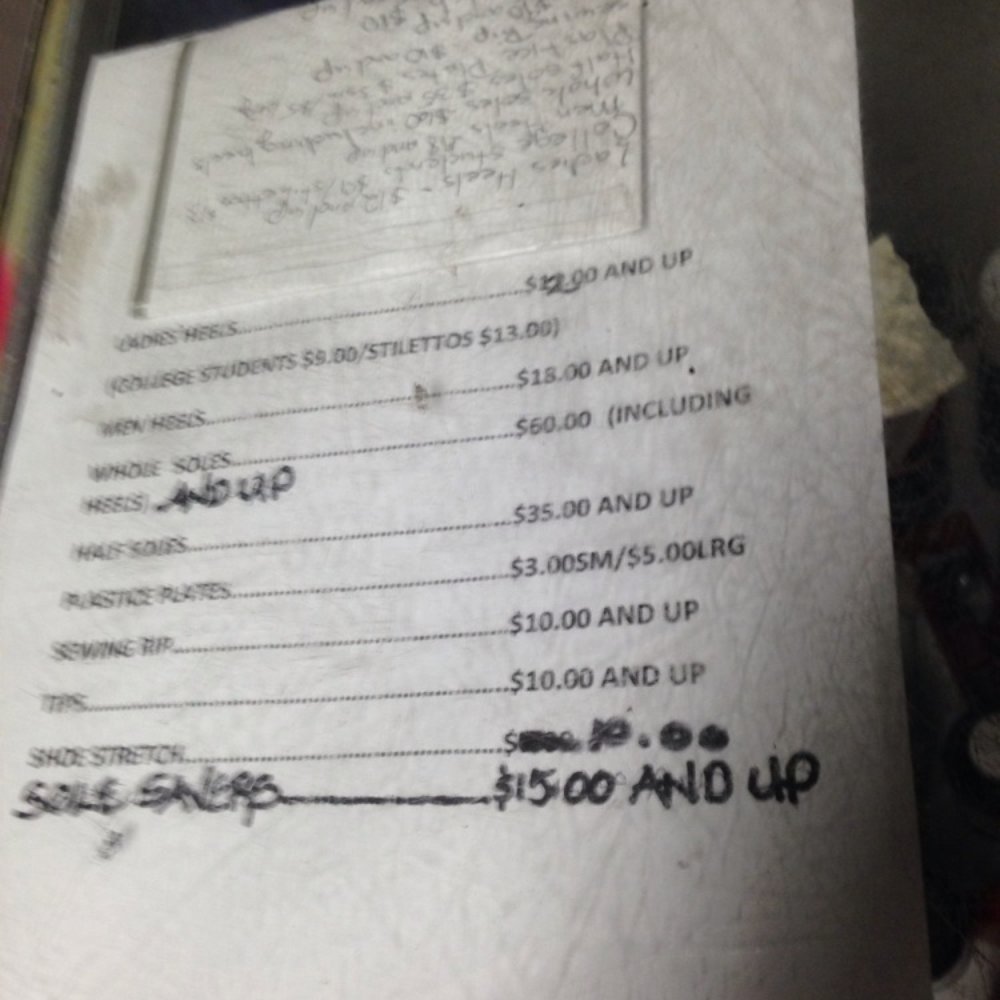 LADIES HEELS..............$12.00 AND UP
(COLLEGE STUDENTS $9.00/STILETTOS $13.00)
MEN HEELS..............$18.00 AND UP
WHOLE SOLES..............$60.00 (INCLUDING
HEELS) AND UP
HALF SOLES..............$35.00 AND UP
PLASTICE PLATES..............$3.00SM/$5.00LRG
SEWING RIP..............$10.00 AND UP
TIPS..............$10.00 AND UP
SHOE STRETCH..............$ 10.00
SOLE SAVERS $15.00 AND UP
Ladies Heels - $12 and up
College Students $9/Stilettos $13
Men Heels $18 and up
Whole soles $60 including heels
Half soles $35 and up
Plastice Plates $3
Rip $10 and up